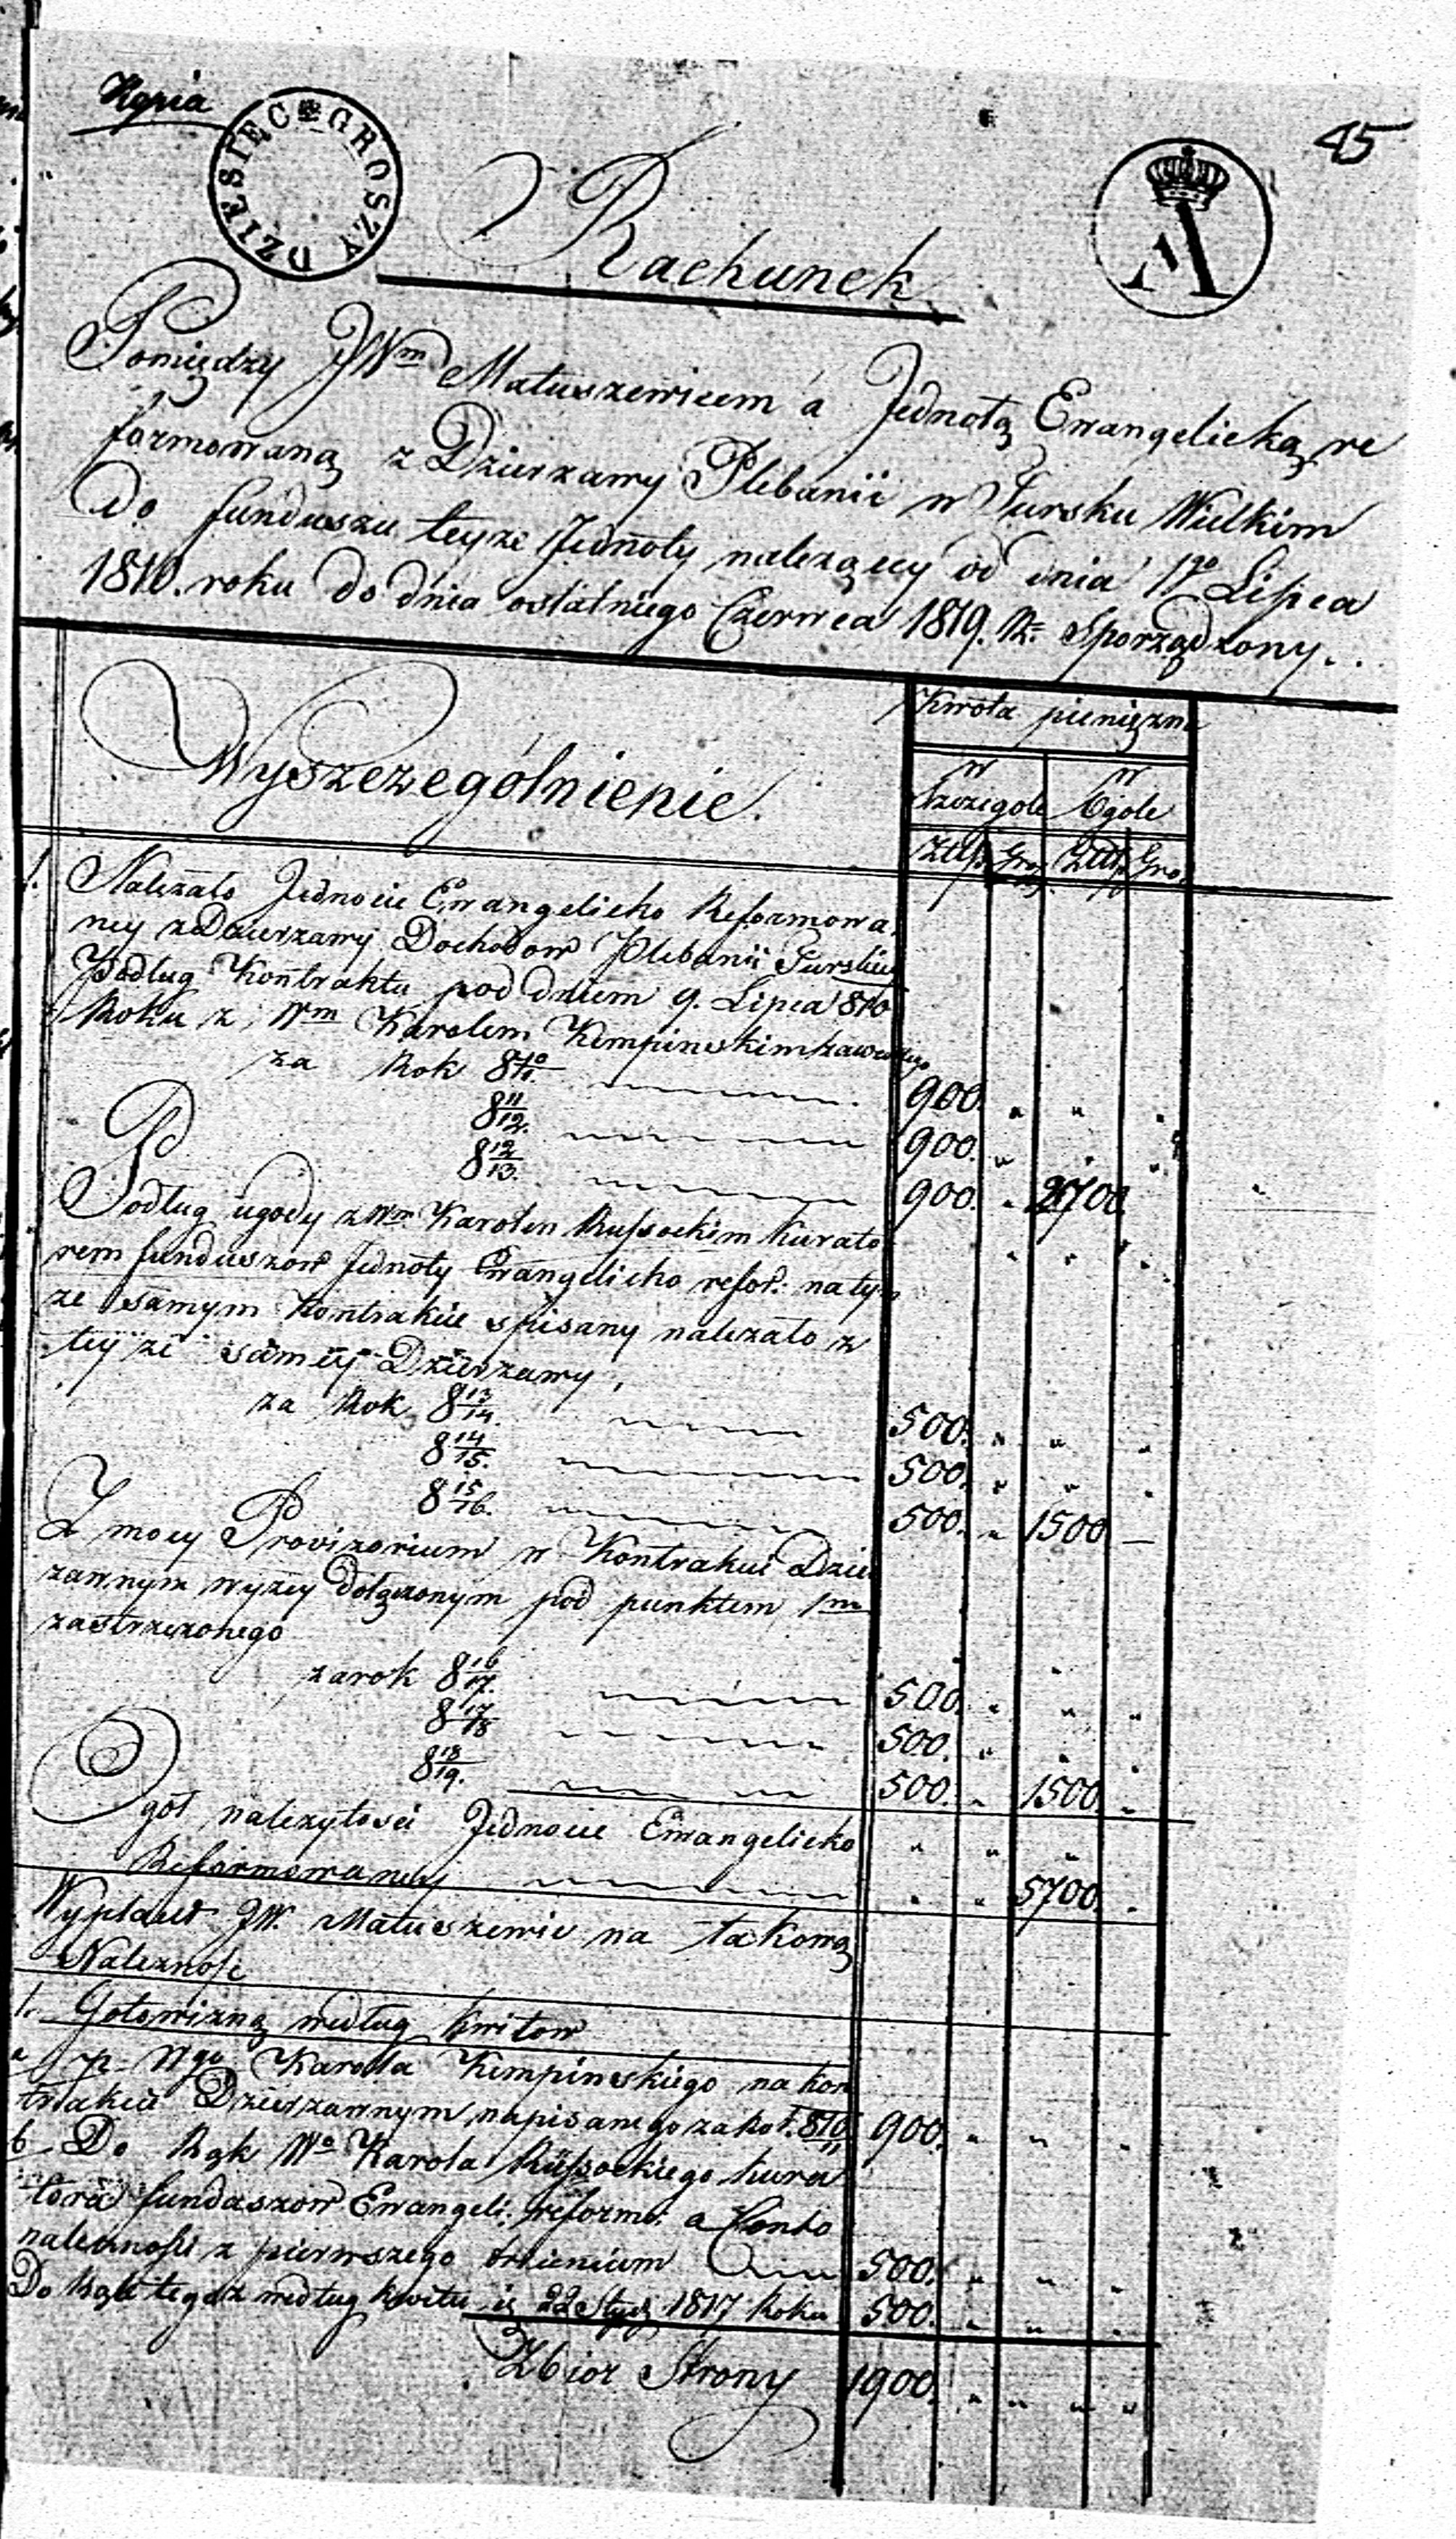 Kopia
DZIESIĘC GROSZY
45
Rachunek
Pomiędzy JWm Matuszewicem a Jednotą Ewangelicką re
formowaną z Dzierzawy Plebanii w Tursku Wielkim
Do funduszu teyze Jednoty nalezący od dnia 1go Lipca
1810. roku do dnia ostatniego Czerwca 1819. R. Sporządzony...
Wyszczególnienie.
Kwota pieniężna
w Szczegole
w Ogole
Złłp. Gro. Złłp. Gro.
1. Nalezało Jednocie Ewangelicko Reformowa
ney z Dzierzawy Dochodow Plebanii Turskiey
Podług Kontraktu pod dniem 9. Lipca 810
Roku z Wm Karolem Kempinskim zawartego
za Rok 8 10/11. 900. " " "
8 11/12. 900. " " "
8 12/13. 900. " 2700.
Podług ugody z Wm Karolem Russockim Kurato
rem funduszow Jednoty Ewangelicko refor: na tym
ze samym Kontrakcie spisany nalezało z
teyze samey Dzierzawy,
za Rok 8 13/14. 500. " " "
8 14/15. 500. " " "
8 15/16. 500. " 1500 —
Z mocy Provizorium w Kontrakcie Dzier
zawnym wyzey dołączonym pod punktem 1m
zastrzezonego
za rok 8 16/17. 500. " " "
8 17/18 500. " " "
8 18/19. 500. " 1500 "
Ogoł nalezytosci Jednocie Ewangelicko " " "
Reformowaney " " 5700. "
Wypłacił JW. Matuszewic na takową
Naleznosc
1. Gotowizną według kwitow
a p. Wgo Karola Kempinskiego na kon
trakcie Dzierzawnym napisanego za Rok 8 10/11 900. " " "
b Do Rąk Wo Karola Russockiego kura
tora funduszow Ewangeli: reform: a Conto
naleznosci z pierwszego triennium 500. " " "
Do Rąk tegoz według kwitu is 22 Stycz 1817 Roku 500. " " "
Zbior Strony 1900. " " " "